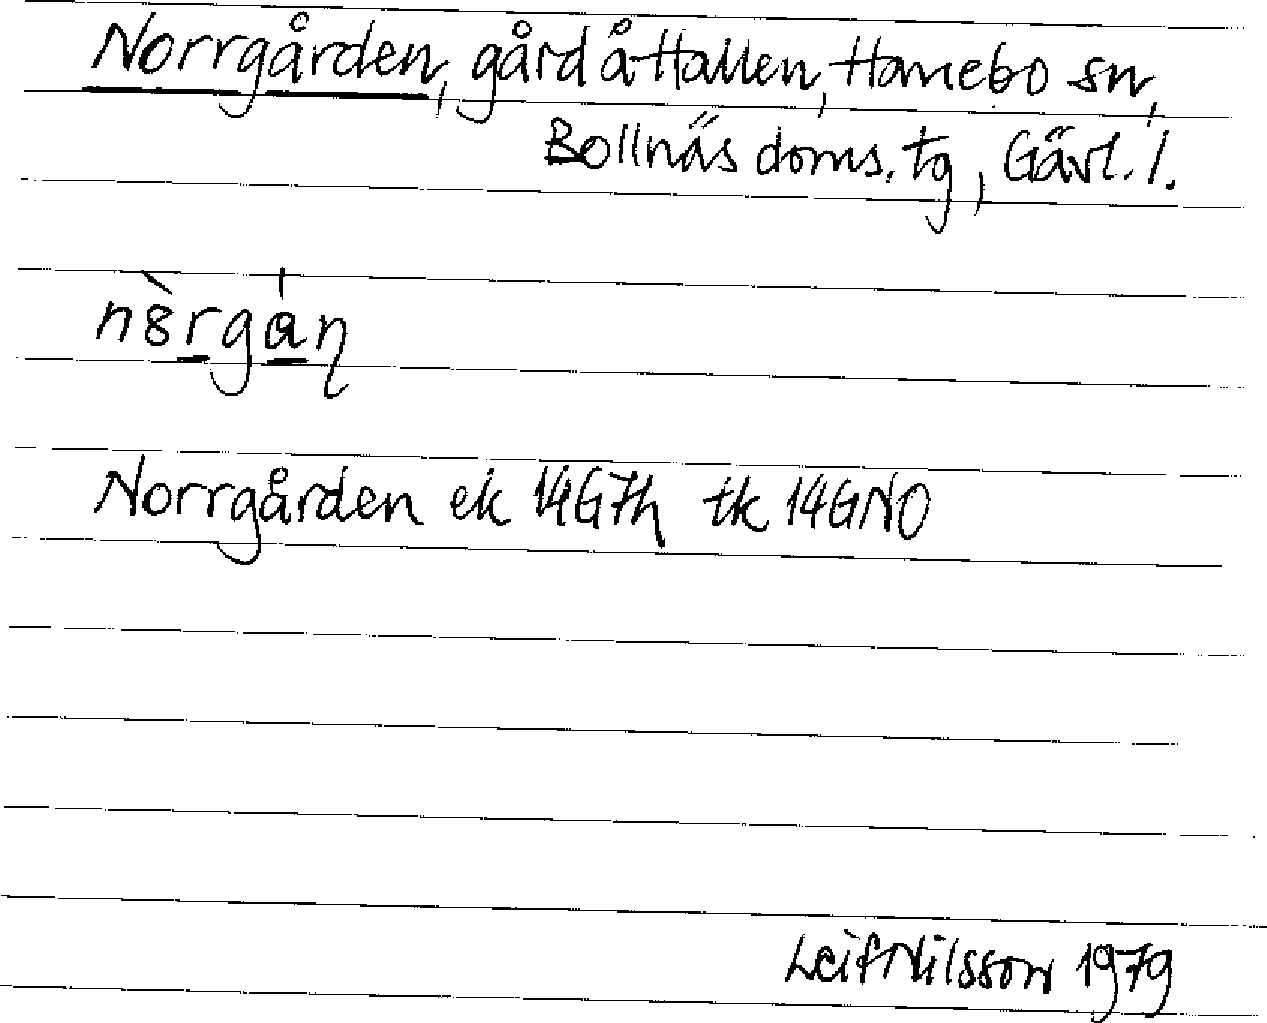 Norrgården, gård å Hallen, Hanebo sn,
Bollnäs doms. tg, Gävl. l.
nȣ̀rgán
Norrgården ek 14G7h tk 14GNO
Leif Nilsson 1979